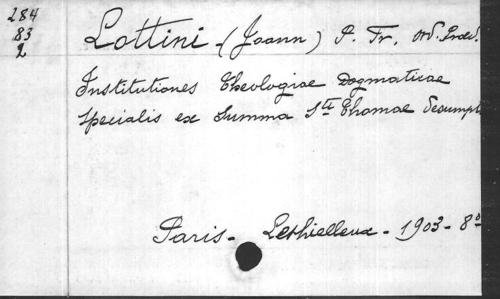 284
83
2
Lottini (Joann) P. Fr. ord. Praed.
Institutiones Theologiae Dogmaticae
specialis ex Summa Sti Thomae desumpt
Paris - Lethielleux - 1903 - 8°